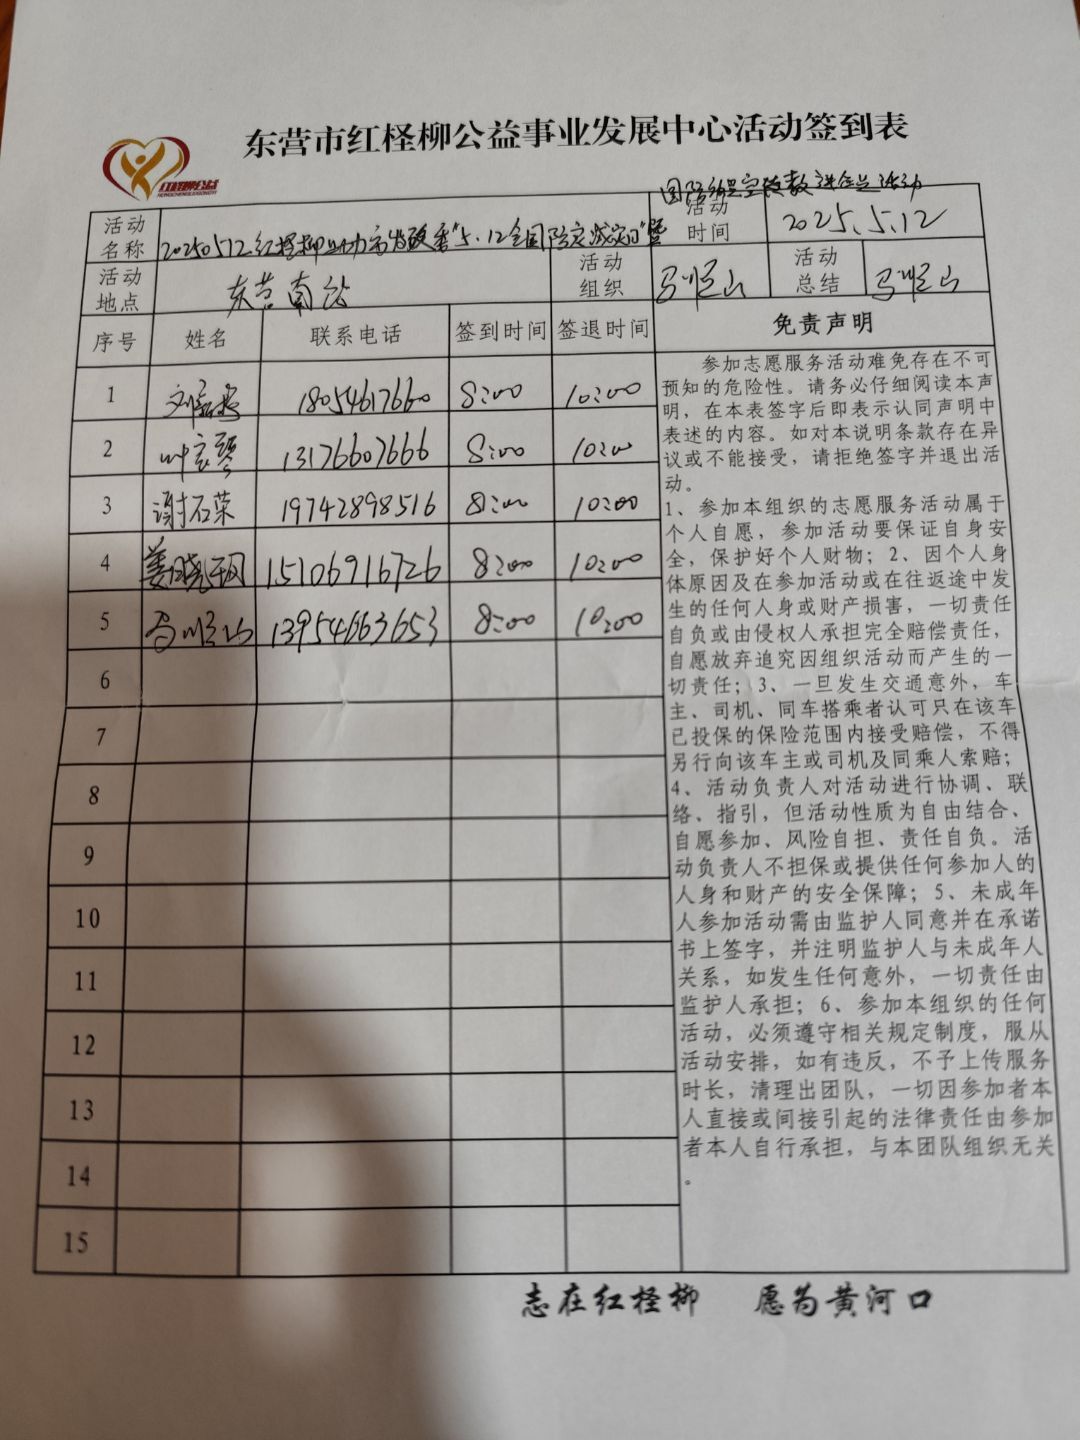 东营市红柽柳公益事业发展中心活动签到表
红柽柳公益
活动名称 20250512红柽柳助力市发改委"5.12全国防灾减灾日"暨
国防 进企业活动
活动时间 2025.5.12
活动地点 东营南站
活动组织 马顺山
活动总结 马顺山
序号 姓名 联系电话 签到时间 签退时间 免责声明
1 18054617660 8:00 10:00
2 13176607666 8:00 10:00
3 谢石荣 19742898516 8:00 10:00
4 姜晓 15106916726 8:00 10:00
5 马顺山 13954663653 8:00 10:00
6
7
8
9
10
11
12
13
14
15
参加志愿服务活动难免存在不可
预知的危险性。请务必仔细阅读本声
明，在本表签字后即表示认同声明中
表述的内容。如对本说明条款存在异
议或不能接受，请拒绝签字并退出活
动。
1、参加本组织的志愿服务活动属于
个人自愿，参加活动要保证自身安
全，保护好个人财物；2、因个人身
体原因及在参加活动或在往返途中发
生的任何人身或财产损害，一切责任
自负或由侵权人承担完全赔偿责任，
自愿放弃追究因组织活动而产生的一
切责任；3、一旦发生交通意外，车
主、司机、同车搭乘者认可只在该车
已投保的保险范围内接受赔偿，不得
另行向该车主或司机及同乘人索赔；
4、活动负责人对活动进行协调、联
络、指引，但活动性质为自由结合、
自愿参加、风险自担、责任自负。活
动负责人不担保或提供任何参加人的
人身和财产的安全保障；5、未成年
人参加活动需由监护人同意并在承诺
书上签字，并注明监护人与未成年人
关系，如发生任何意外，一切责任由
监护人承担；6、参加本组织的任何
活动，必须遵守相关规定制度，服从
活动安排，如有违反，不予上传服务
时长，清理出团队，一切因参加者本
人直接或间接引起的法律责任由参加
者本人自行承担，与本团队组织无关
。
志在红柽柳 愿为黄河口